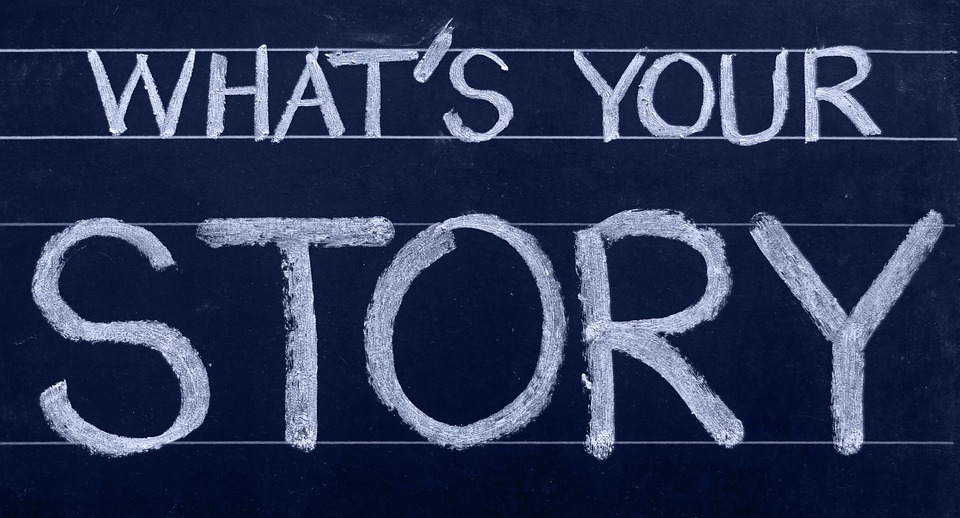 WHAT'S YOUR
STORY